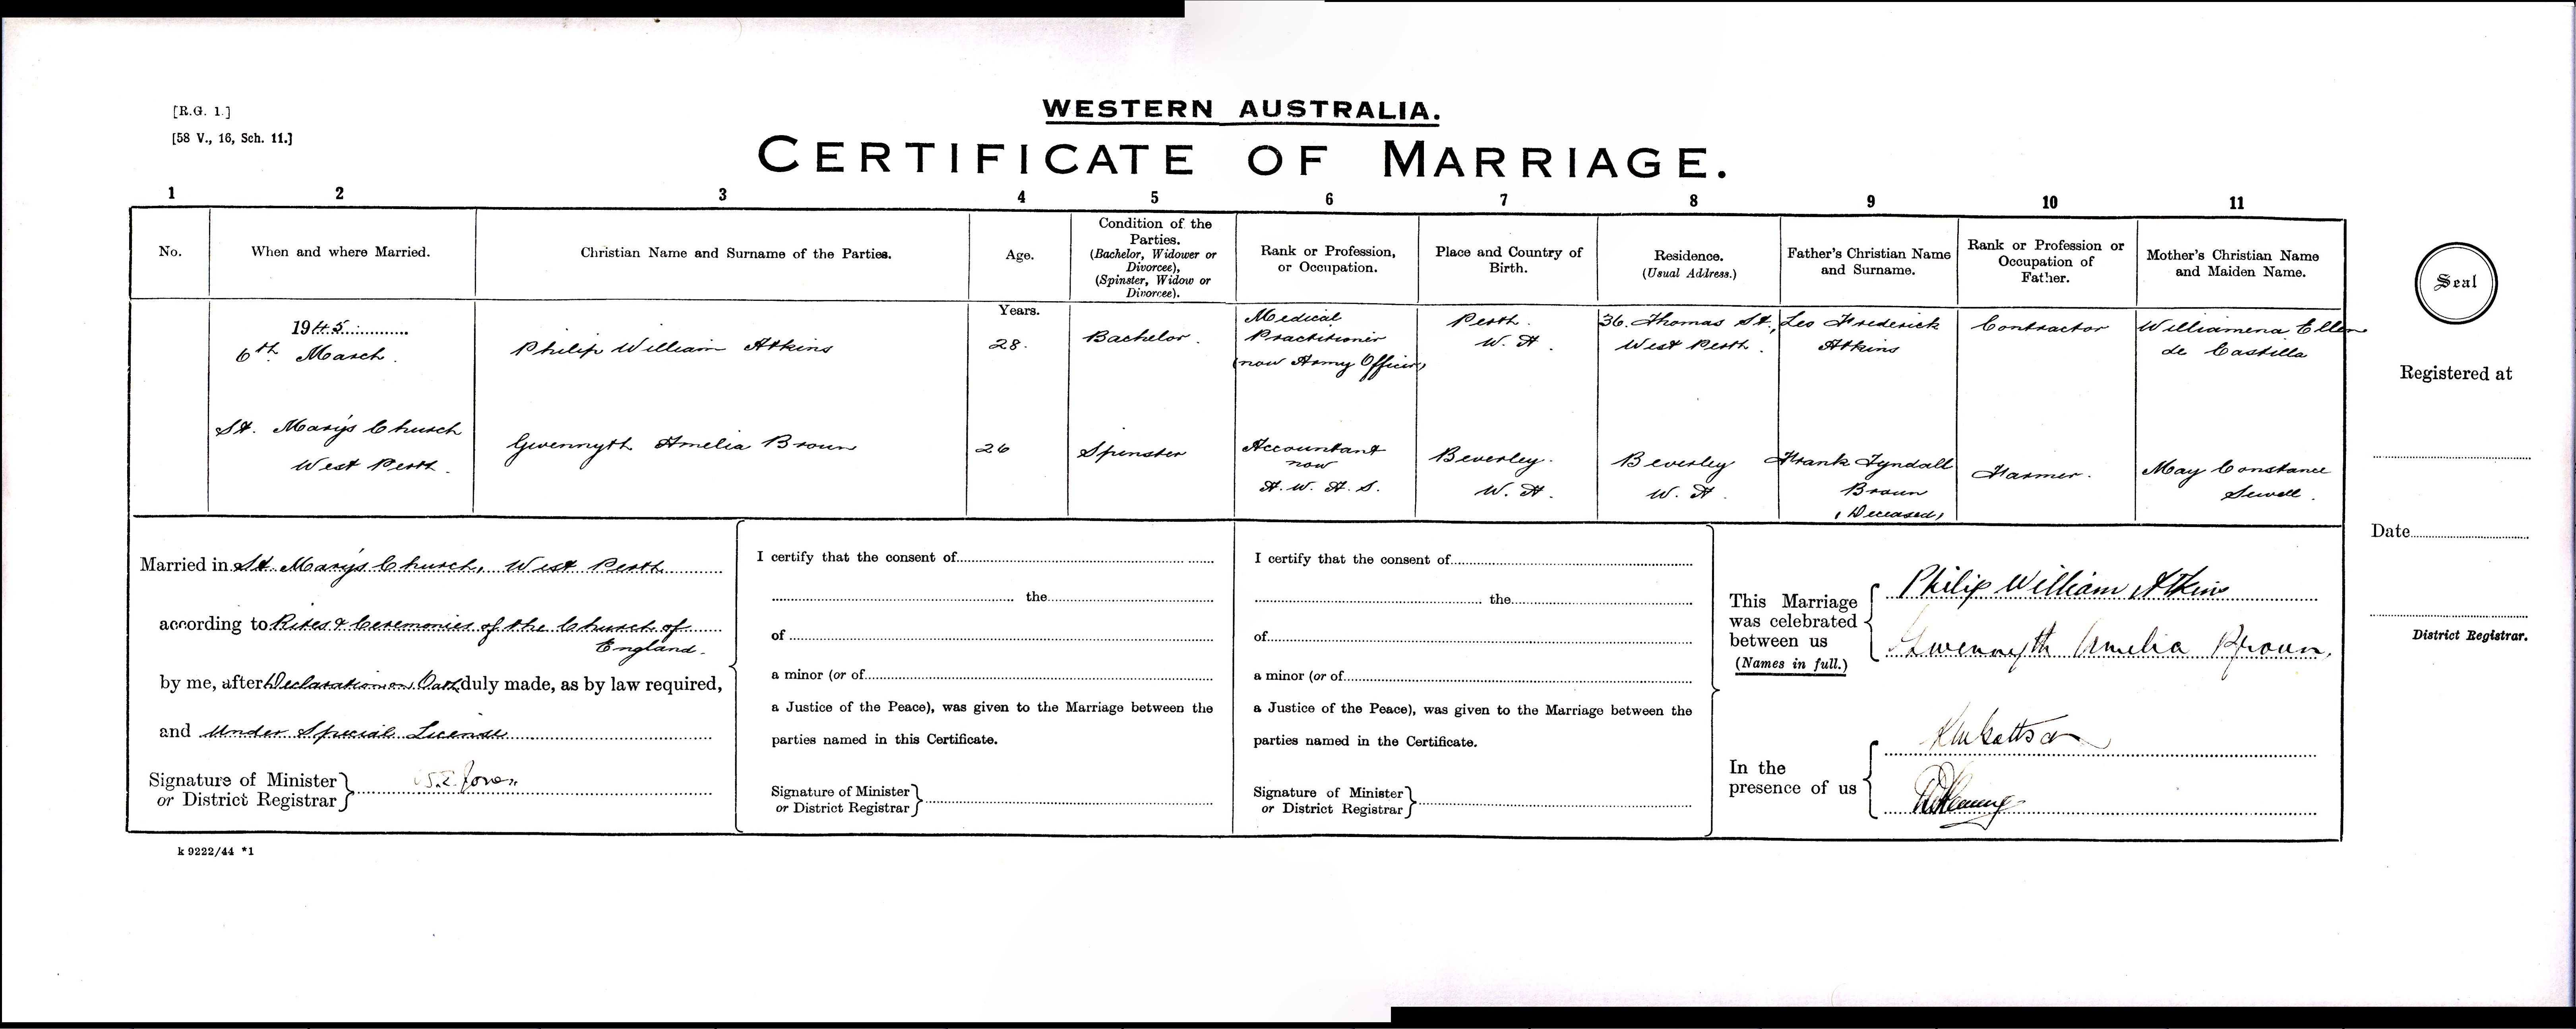 [R.G. 1.]
[58 V., 16, Sch. 11.]
WESTERN AUSTRALIA.
CERTIFICATE OF MARRIAGE.
1 2 3 4 5 6 7 8 9 10 11
No.
When and where Married.
Christian Name and Surname of the Parties.
Age.
Condition of the
Parties.
(Bachelor, Widower or
Divorcee),
(Spinster, Widow or
Divorcee).
Rank or Profession,
or Occupation.
Place and Country of
Birth.
Residence.
(Usual Address.)
Father's Christian Name
and Surname.
Rank or Profession or
Occupation of
Father.
Mother's Christian Name
and Maiden Name.
1945
6th March.
Philip William Atkins
Years.
28.
Bachelor.
Medical
Practitioner
(now Army Officer)
Perth.
W. A.
36. Thomas St.,
West Perth.
Leo Frederick
Atkins
Contractor
Williamena Ellen
de Castilla
St. Mary's Church
West Perth.
Gwennyth Amelia Broun
26
Spinster
Accountant
now
A. W. A. S.
Beverley.
W. A.
Beverley
W. A.
Frank Tyndall
Broun
(Deceased)
Farmer.
May Constance
Sewell.
Married in St. Mary's Church, West Perth
according to Rites & Ceremonies of the Church of
England.
by me, after Declaration on Oath duly made, as by law required,
and Under Special License
Signature of Minister
or District Registrar
Jones
I certify that the consent of
the
of
a minor (or of
a Justice of the Peace), was given to the Marriage between the
parties named in this Certificate.
Signature of Minister
or District Registrar
I certify that the consent of
the
of
a minor (or of
a Justice of the Peace), was given to the Marriage between the
parties named in the Certificate.
Signature of Minister
or District Registrar
This Marriage
was celebrated
between us
(Names in full.)
Philip William Atkins
Gwennyth Amelia Broun,
In the
presence of us
Seal
Registered at
Date
District Registrar.
k 9222/44 *1